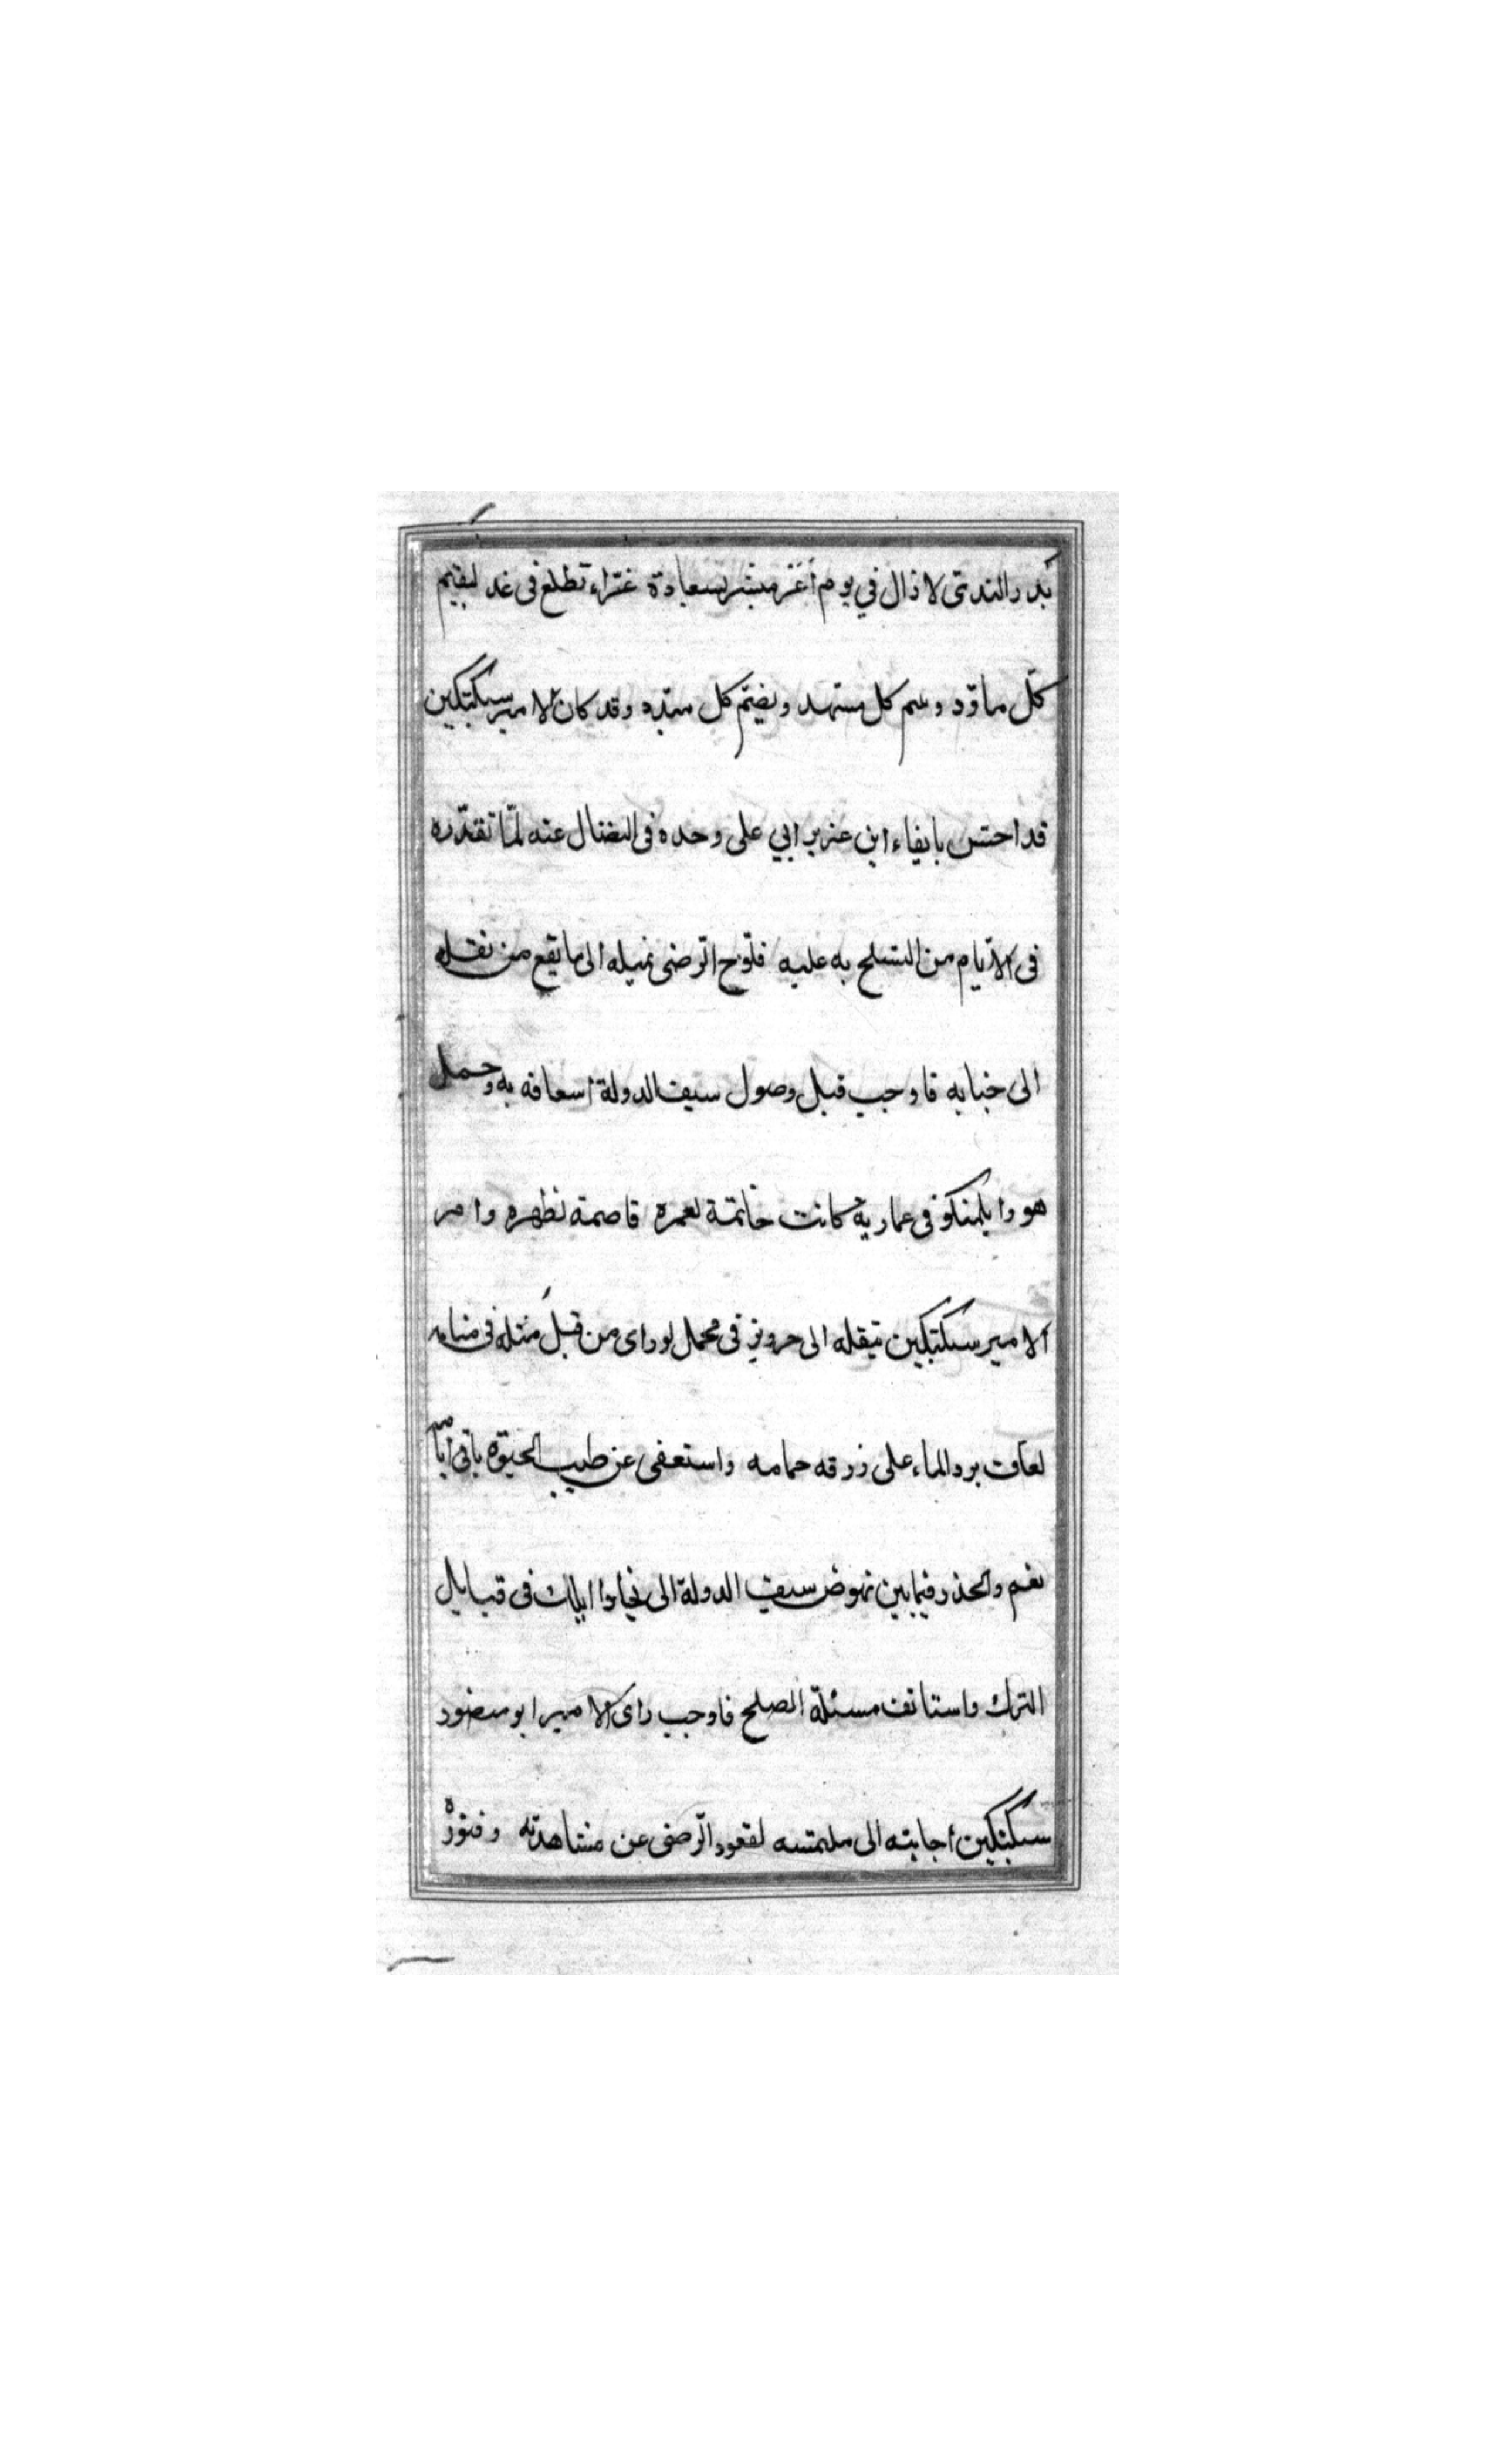 بدر الندتى لا زال في يوم أغر مبشر بسعادة غراء تطلع فى غد ليقيم
كل مأود وسم كل مشهد ويضم كل مبدد وقد كان الامير سبكتكين
قد احتس بايفاء ابن عزير ابي على وحده فى النضال عنه لما تقدره
فى الايام من التسلح به عليه فلوح الرضى بميله الى ما يقع من نقله
الى خبابه فاوجب قبل وصول سيف الدولة أسعافه به وحمل
هو وايلمنكو فى عمارية كانت خاتمة لعمره قاصمة لظهره وامر
الامير سبكتكين بنقله الى جرويز فى محمل لو راى من قبل مثله فى منامه
لعاف برد الماء على زرقه حمامه واستعفى عن طيب الحيوة باقى ايامه
نعم وانحذر فيما بين نهوض سيف الدولة الى نجاوا ايلك فى قبايل
الترك واستانف مسئلة الصلح فاوجب راى الامير ابو منصور
سبكتكين أجابته الى ملتمسه لقعود الرضى عن مشاهدته وفتوره